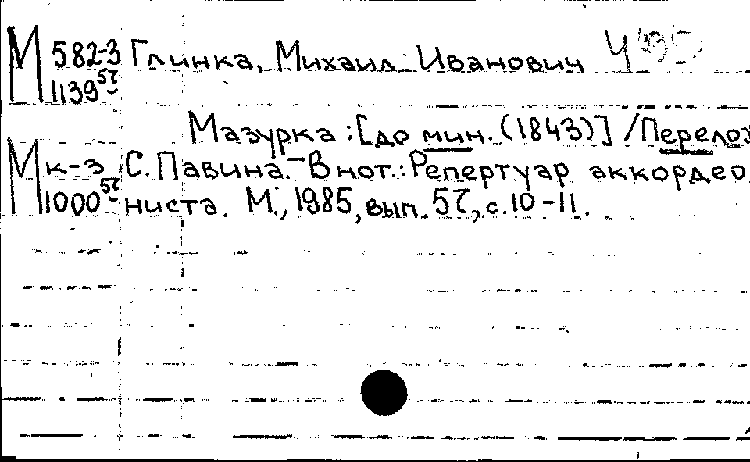 М 582-3 Глинка, Михаил Иванович Ч
1139 57
Мазурка : [до мин. (1843)] / Перелож
М к-з С. Павина. – В нот.: Репертуар аккордео
1000 57 ниста. М., 1985, вып. 57, с. 10-11.